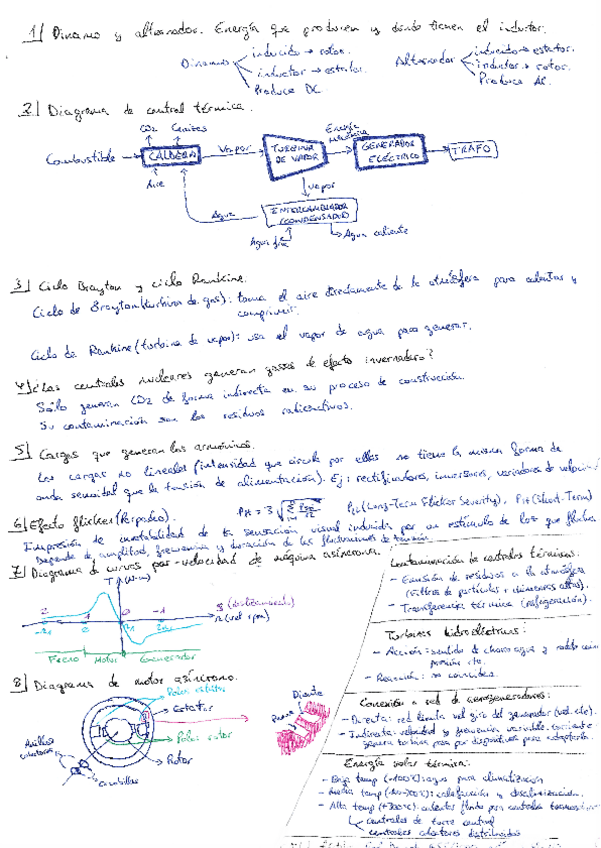 1) Dinamo y alternador. Energía que producen y dónde tienen el inductor.
Dinamo
inducido → rotor.
inductor → estator.
Produce DC.
Alternador
inducido → estator.
inductor → rotor.
Produce AC.
2) Diagrama de central térmica.
CO2 Cenizas
Combustible
CALDERA
Vapor
TURBINA DE VAPOR
Energía mecánica
GENERADOR ELÉCTRICO
TRAFO
Aire
vapor
Agua
INTERCAMBIADOR (CONDENSADOR)
Agua fría
Agua caliente
3) Ciclo Brayton y ciclo Rankine.
Ciclo de Brayton (turbina de gas): toma el aire directamente de la atmósfera para calentar y
comprimir.
Ciclo de Rankine (turbina de vapor): usa el vapor de agua para generar.
4) ¿Las centrales nucleares generan gases de efecto invernadero?
Sólo generan CO2 de forma indirecta en su proceso de construcción.
Su contaminación son los residuos radioactivos.
5) Cargas que generan los armónicos.
Las cargas no lineales (intensidad que circula por ellas no tiene la misma forma de
onda senoidal que la tensión de alimentación). Ej: rectificadores, inversores, variadores de velocidad
6) Efecto flicker (Parpadeo).
Plt (Long-Term Flicker Severity), Pst (Short-Term)
Impresión de inestabilidad de la sensación visual inducida por un estímulo de luz que fluctúa.
Depende de amplitud, frecuencia y duración de las fluctuaciones de tensión.
7) Diagrama de curvas par-velocidad de máquina asíncrona.
T (N·m)
2 1 0 -1
S (deslizamiento)
n (vel rpm)
Freno Motor Generador
8) Diagrama de motor asíncrono.
Polos estator
Estator
Polos rotor
Rotor
Anillos
Escobillas
Diente
Ranura
Contaminación de centrales térmicas:
- Emisión de residuos a la atmósfera
(filtros de partículas y chimeneas altas).
- Transferencia térmica (refrigeración).
Turbinas hidroeléctricas:
- Acción: sentido de chorro agua y rodete coin
- Reacción: no coincide.
Conexión a red de aerogeneradores:
- Directa: red limita vel giro del generador (vel. cte).
- Indirecta: velocidad y frecuencia variable. Corriente
genera turbina pasa por dispositivos para adaptarla.
Energía solar térmica:
- Baja temp (<100ºC): agua para climatización
- Media temp (100-300ºC): calefacción y desalinización.
- Alta temp (+300ºC): calentar fluido para central termosolar
centrales de torre central
centrales colectores distribuidos